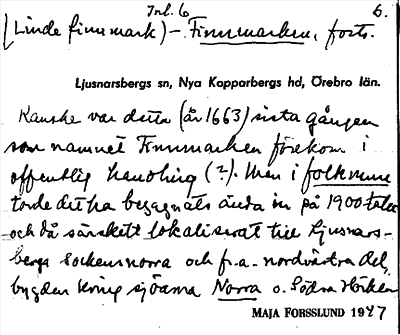 Inl. 6 6.
(Linde finnmark) - Finnmarken, forts.
Ljusnarsbergs sn, Nya Kopparbergs hd, Örebro län.
Kanske var detta (år 1663) sista gången
som namnet Finnmarken förekom i
offentlig handling (?). Men i folkmun
torde det ha begagnats ända in på 1900 talet
och då särskilt lokaliserat till Ljusnars-
bergs sockens norra och fr. a. nordvästra del,
bygden kring sjöarna Norra o. Södra Hörken
MAJA FORSSLUND 1947